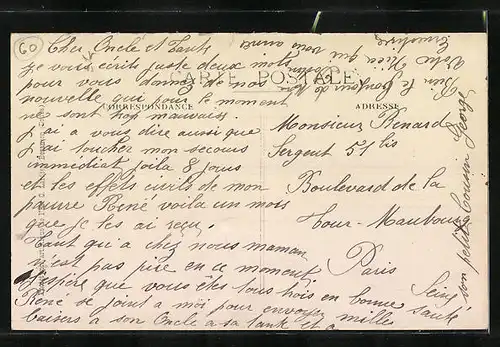 60
Cher Oncle et Tante
je vous écrits juste deux mots
pour vous donner de nos
nouvelle qui pour le moment
ne sont trop mauvais.
J'ai a vous dire aussi que
j'ai toucher mon secours
immidiat voila 8 jours
et les effets civils de mon
pauvre René voila un mois
que je les ai reçu.
Tant qui a chez nous maman
n'est pas pire en ce moment
J'espère que vous êtes tous trois en bonne santé
René de joint a moi pour envoyer milles
baisers a son Oncle a sa tante et a
son petit Cousin Georges
Votre Nièce qui vous aime
Ernestine
CARTE POSTALE
CORRESPONDANCE
ADRESSE
Monsieur Renard
Sergent 51 bis
Boulevard de la
Tour-Maubourg
Paris
Seine